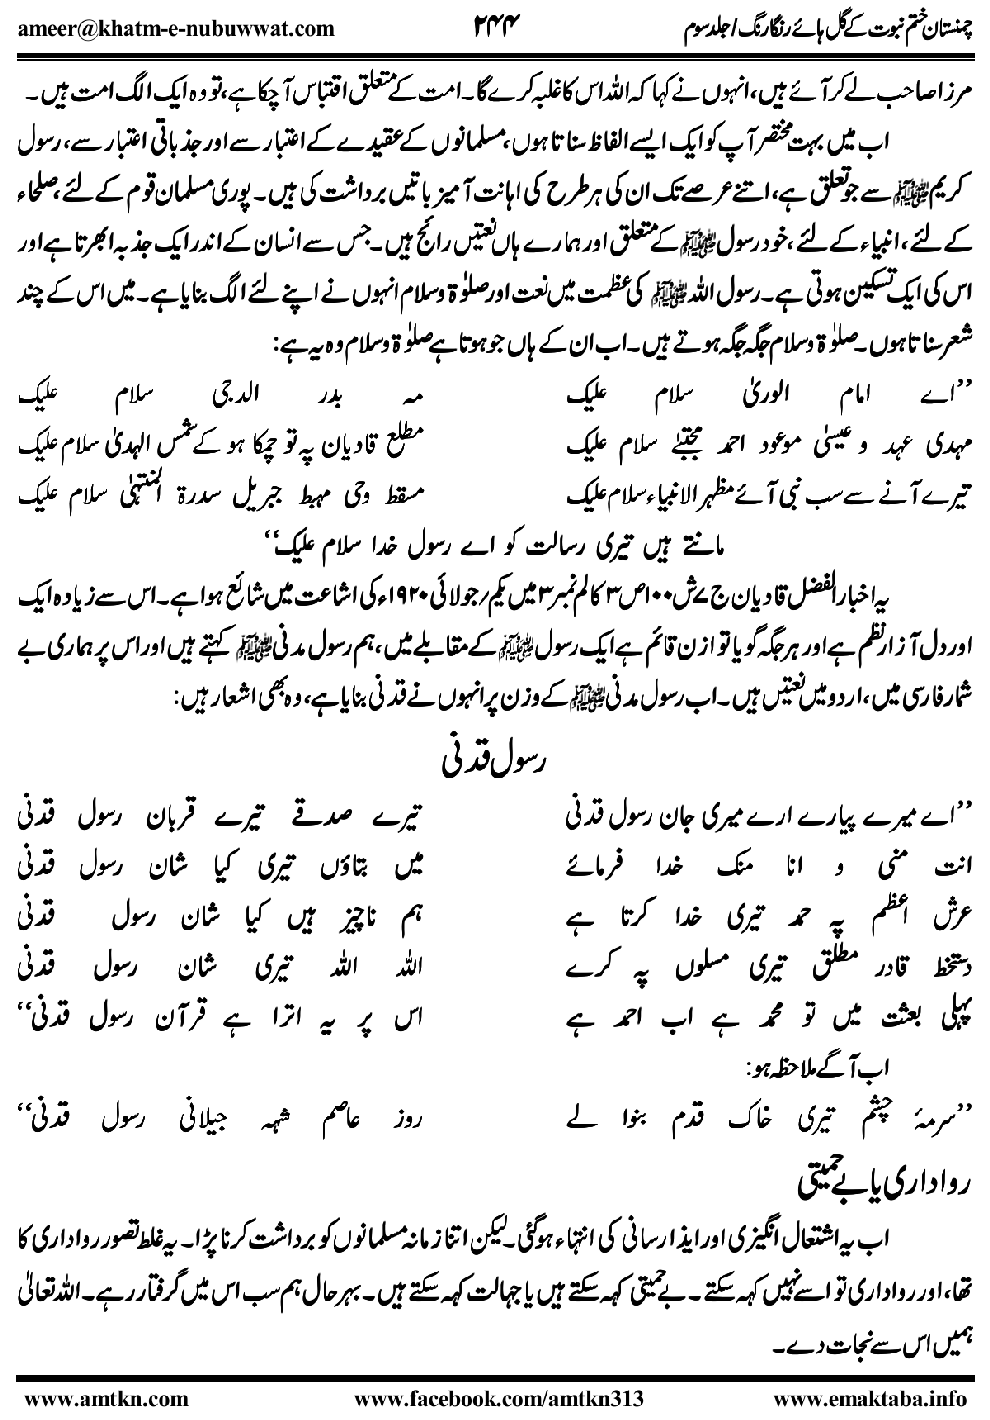 ameer@khatm-e-nubuwwat.com ۲۴۴ چمنستان ختم نبوت کے گل ہائے رنگا رنگ / جلد سوم
مرزا صاحب لے کر آئے ہیں، انہوں نے کہا کہ اللہ اس کا غلبہ کرے گا۔ امت کے متعلق اقتباس آ چکا ہے، تو وہ ایک الگ امت ہیں۔
اب میں بہت مختصر آپ کو ایک ایسے الفاظ سناتا ہوں، مسلمانوں کے عقیدے کے اعتبار سے اور جذباتی اعتبار سے، رسول
کریم ﷺ سے جو تعلق ہے، اتنے عرصے تک ان کی ہر طرح کی اہانت آمیز باتیں برداشت کی ہیں۔ پوری مسلمان قوم کے لئے، صلحاء
کے لئے، انبیاء کے لئے، خود رسول ﷺ کے متعلق اور ہمارے ہاں نعتیں رائج ہیں۔ جس سے انسان کے اندر ایک جذبہ ابھرتا ہے اور
اس کی ایک تسکین ہوتی ہے۔ رسول اللہ ﷺ کی عظمت میں نعت اور صلوٰۃ وسلام انہوں نے اپنے لئے الگ بنایا ہے۔ میں اس کے چند
شعر سناتا ہوں۔ صلوٰۃ وسلام جگہ جگہ ہوتے ہیں۔ اب ان کے ہاں جو ہوتا ہے صلوٰۃ وسلام وہ یہ ہے:
’’اے امام الوریٰ سلام علیک مہ بدر الدجی سلام علیک
مہدی عہد و عیسیٰ موعود احمد مجتبے سلام علیک مطلع قادیان پہ تو چمکا ہو کے شمس الہدیٰ سلام علیک
تیرے آنے سے سب نبی آئے مظہر الانبیاء سلام علیک مسقط وحی مہبط جبریل سدرۃ المنتہیٰ سلام علیک
مانتے ہیں تیری رسالت کو اے رسول خدا سلام علیک‘‘
یہ اخبار الفضل قادیان ج ۷ ش ۱۰۰ ص ۳ کالم نمبر ۳ میں یکم؍جولائی ۱۹۲۰ء کی اشاعت میں شائع ہوا ہے۔ اس سے زیادہ ایک
اور دل آزار نظم ہے اور ہر جگہ گویا توازن قائم ہے ایک رسول ﷺ کے مقابلے میں، ہم رسول مدنی ﷺ کہتے ہیں اور اس پر ہماری بے
شمار فارسی میں، اردو میں نعتیں ہیں۔ اب رسول مدنی ﷺ کے وزن پر انہوں نے قدنی بنایا ہے، وہ بھی اشعار ہیں:
رسول قدنی
’’اے میرے پیارے ارے میری جان رسول قدنی تیرے صدقے تیرے قربان رسول قدنی
انت منی و انا منک خدا فرمائے میں بتاؤں تیری کیا شان رسول قدنی
عرش اعظم پہ حمد تیری خدا کرتا ہے ہم ناچیز ہیں کیا شان رسول قدنی
دستخط قادر مطلق تیری مسلوں پہ کرے اللہ اللہ تیری شان رسول قدنی
پہلی بعثت میں تو محمد ہے اب احمد ہے اس پر یہ اترا ہے قرآن رسول قدنی‘‘
اب آگے ملاحظہ ہو:
’’سرمۂ چشم تیری خاک قدم بنوا لے روز عاصم شہہ جیلانی رسول قدنی‘‘
رواداری یا بے حمیتی
اب یہ اشتعال انگیزی اور ایذا رسانی کی انتہاء ہو گئی۔ لیکن اتنا زمانہ مسلمانوں کو برداشت کرنا پڑا۔ یہ غلط تصور رواداری کا
تھا، اور رواداری تو اسے نہیں کہہ سکتے۔ بے حمیتی کہہ سکتے ہیں یا جہالت کہہ سکتے ہیں۔ بہر حال ہم سب اس میں گرفتار رہے۔ اللہ تعالیٰ
ہمیں اس سے نجات دے۔
www.amtkn.com www.facebook.com/amtkn313 www.emaktaba.info